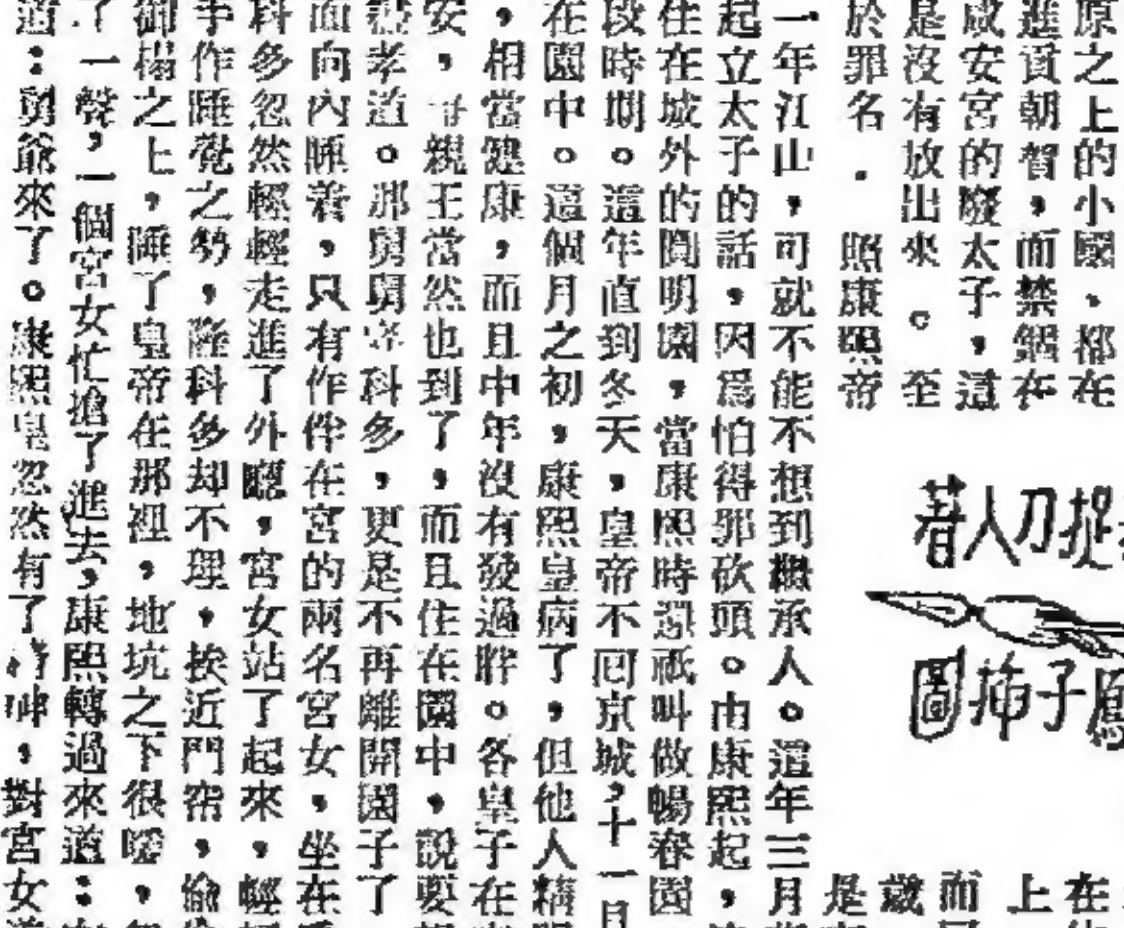 原之上的小國，都在
進貢朝賀，而禁錮在
咸安宮的廢太子，這
是沒有放出來。至
於罪名．照康熙帝
捉刀人著
子插圖
在
上
而
歲
是
一年江山，可就不能不想到繼承人。這年三月
起立太子的話，因爲怕得罪砍頭。由康熙起，
住在城外的圓明園，當康熙時還祇叫做暢春園
段時期。這年直到冬天，皇帝不回京城，十一月
在園中。這個月之初，康熙皇病了，但他人精
，相當健康，而且中年沒有發過胖。各皇子在
安，親王當然也到了，而且住在園中，說要
孝道。那舅舅科多，更是不再離開園子了
面向內睡着，只有作伴在宮的兩名宮女，坐在
科多忽然輕輕走進了外廳，宮女站了起來，輕
手作睡覺之勢，隆科多却不理，挨近門帘，偷
御榻之上，睡了皇帝在那裡，地坑之下很暖，
了一聲，一個宮女忙搶了進去，康熙轉過來道：
道：舅爺來了。康熙皇忽然有了呻，對宮女